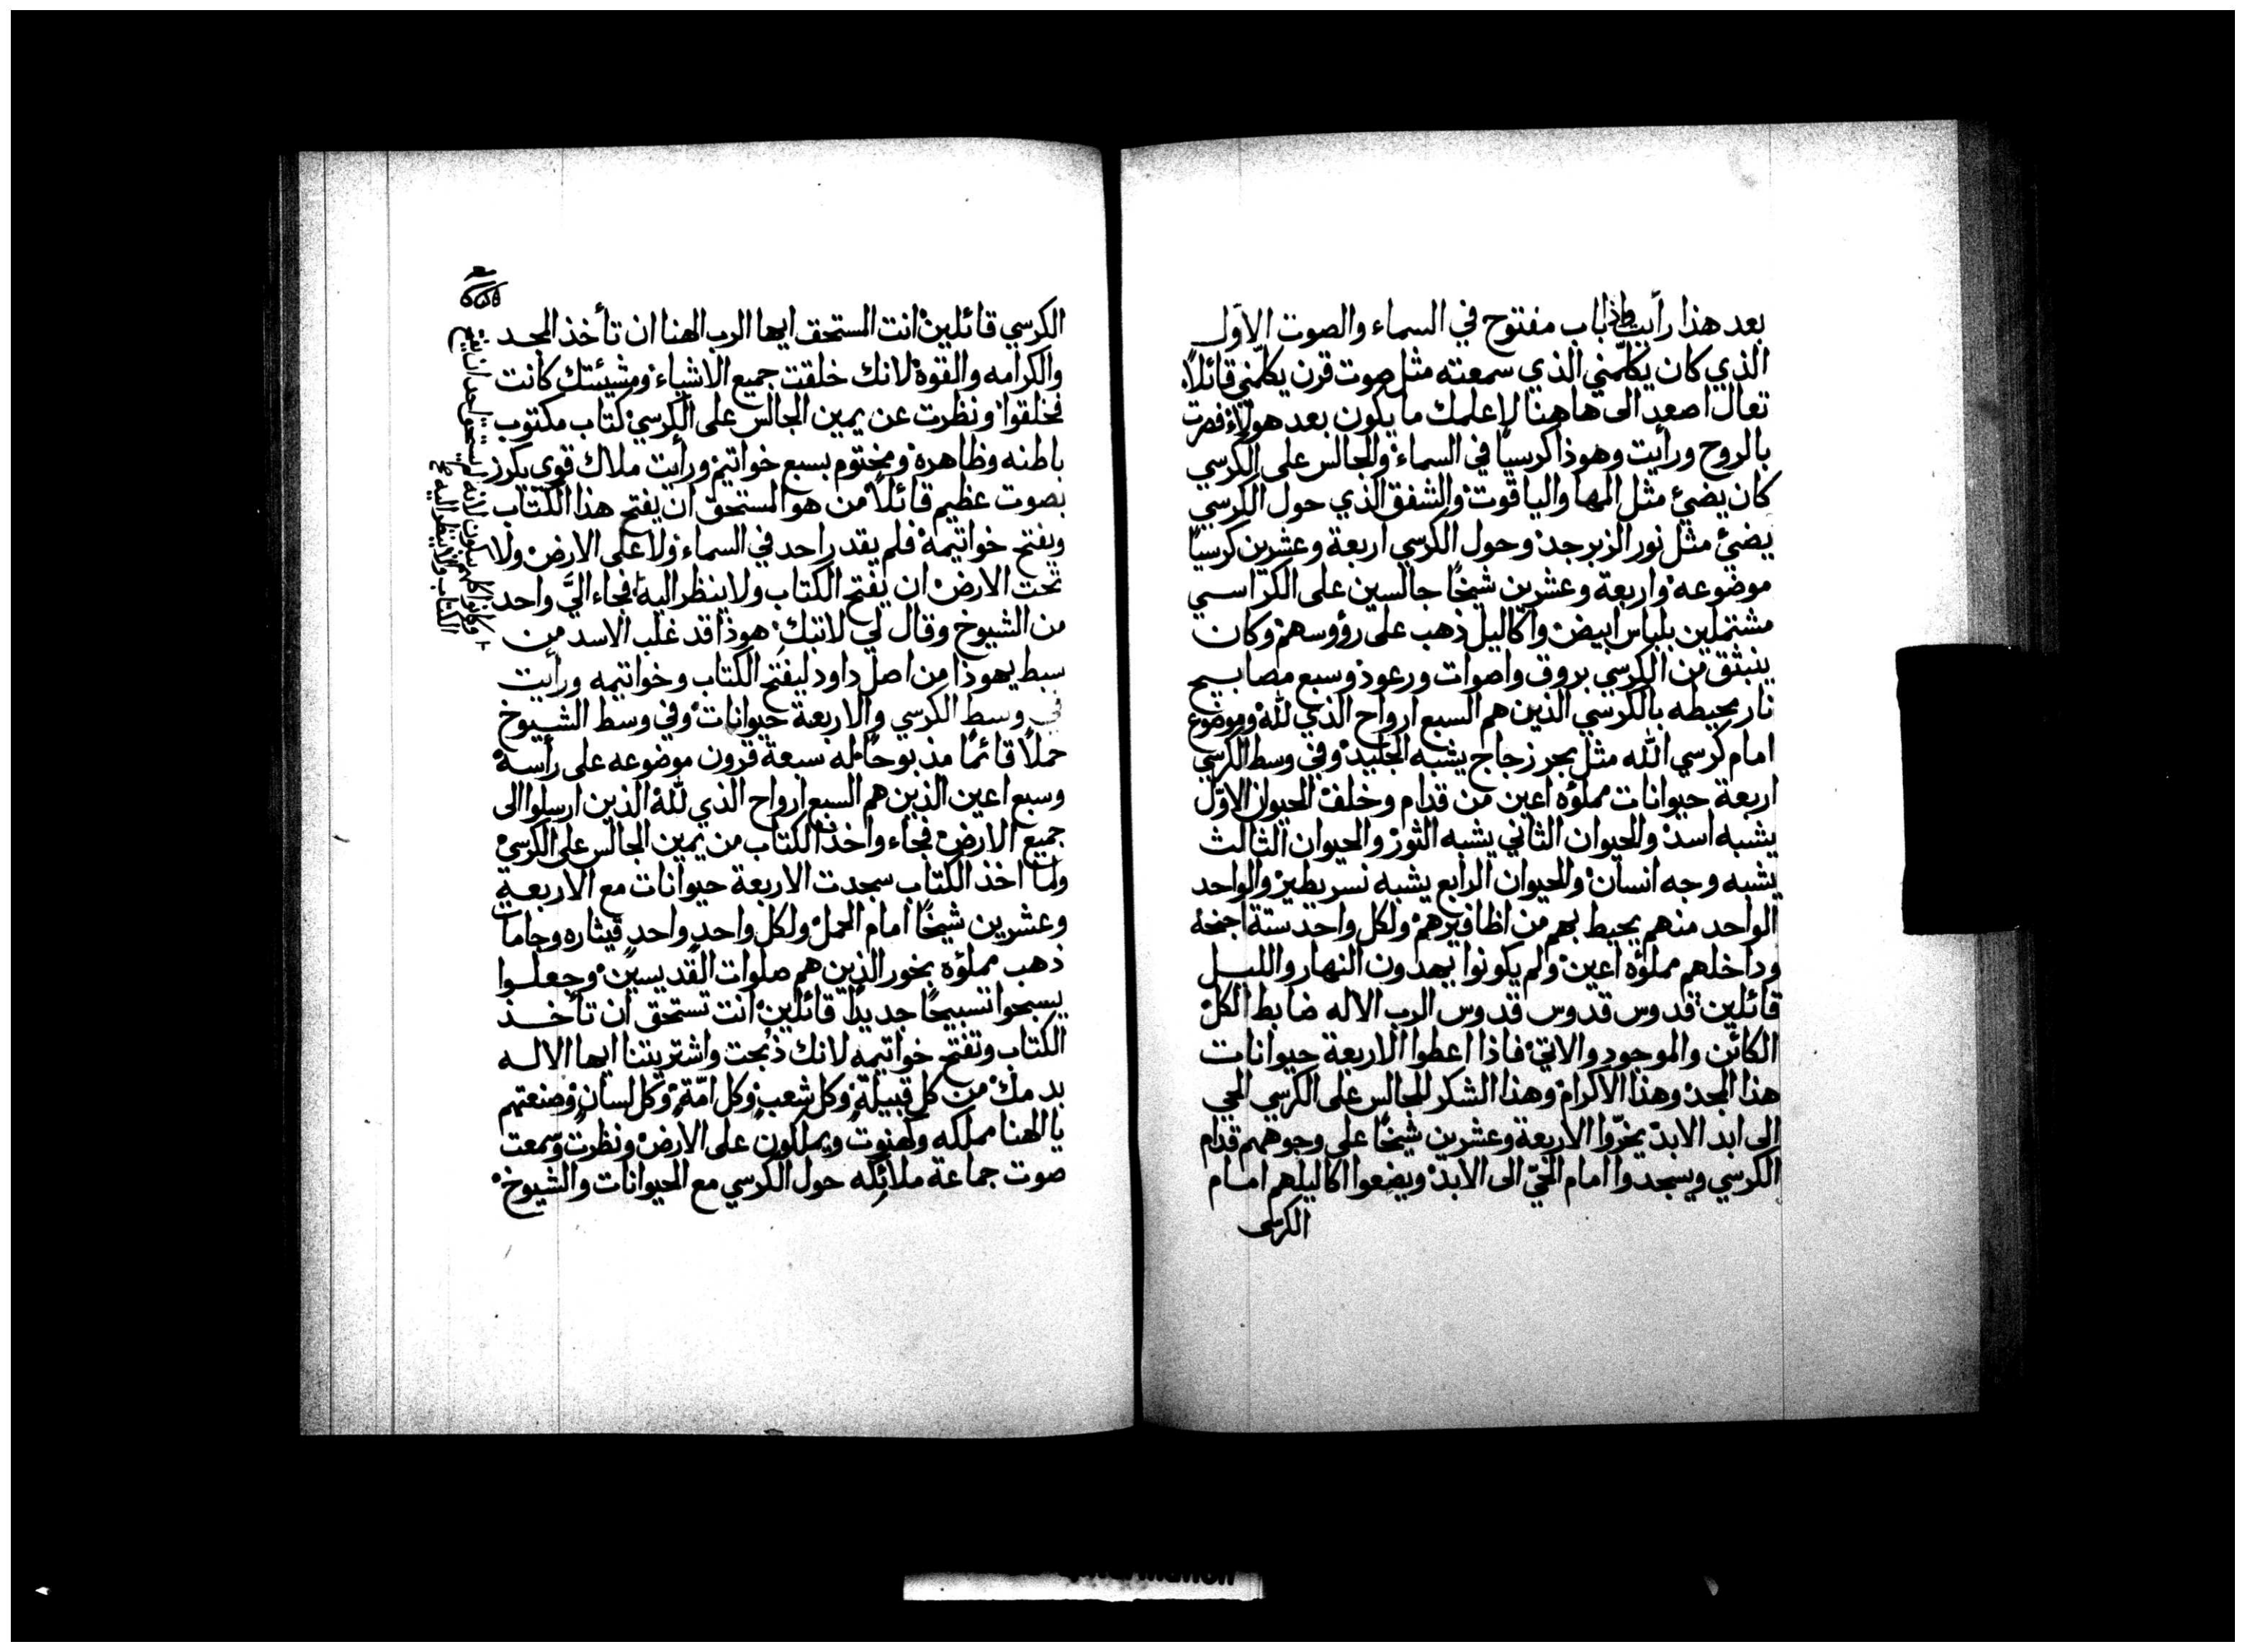 بعد هذا رأيت واذا باب مفتوح في السماء والصوت الاول
الذي كان يكلّمني الذي سمعته مثل صوت قرن يكلّمني قائلاً
تعال اصعد الى هاهنا لاعلمك ما يكون بعد هولاء فصرت
بالروح ورأيت وهوذا كرسيًا في السماء والجالس على الكرسي
كان يضيء مثل المها والياقوت والشفق الذي حول الكرسي
يضيء مثل نور الزبرجد وحول الكرسي اربعة وعشرين كرسيًا
موضوعه واربعة وعشرين شيخًا جالسين على الكراسي
مشتملين بلباس ابيض واكاليل ذهب على رؤوسهم وكان
ينبثق من الكرسي بروق واصوات ورعود وسبع مصابيح
نار محيطه بالكرسي الذين هم السبع ارواح الذي لله وموضوع
امام كرسي الله مثل بحر زجاج يشبه الجليد وفي وسط الكرسي
اربعة حيوانات مملؤه اعين من قدام وخلف الحيوان الاوّل
يشبه اسد والحيوان الثاني يشبه الثور والحيوان الثالث
يشبه وجه انسان والحيوان الرابع يشبه نسر يطير والواحد
الواحد منهم يحيط بهم من اظافيرهم ولكل واحد ستة اجنحة
وداخلهم مملؤه اعين ولم يكونوا يهدون النهار والليل
قائلين قدوس قدوس قدوس الرب الاله ضابط الكل
الكائن والموجود والاتي فاذا اعطوا الاربعة حيوانات
هذا المجد وهذا الاكرام وهذا الشكر للجالس على الكرسي الحي
الى ابد الابد يخرّوا الاربعة وعشرين شيخًا على وجوههم قدام
الكرسي ويسجدوا امام الحيّ الى الابد ويضعوا اكاليلهم امام
الكرسي
الكرسي قائلين انت المستحق ايها الرب الهنا ان تأخذ المجد
والكرامه والقوة لانك خلقت جميع الاشياء ومشيئتك كانت
فخلقوا ونظرت عن يمين الجالس على الكرسي كتاب مكتوب
باطنه وظاهره ومختوم بسبع خواتيم ورأيت ملاك قوي يكرز
بصوت عظيم قائلاً من هو المستحق ان يفتح هذا الكتاب
ويفتح خواتيمه فلم يقدر احد في السماء ولا على الارض ولا
تحت الارض ان يفتح الكتاب ولا ينظر اليه فجاء اليَّ واحد
من الشيوخ وقال لي لا تبك هوذا قد غلب الاسد من
سبط يهوذا من اصل داود ليفتح الكتاب وخواتيمه ورأيت
في وسط الكرسي والاربعة حيوانات وفي وسط الشيوخ
حملاً قائمًا مذبوحًا له سبعة قرون موضوعه على رأسه
وسبع اعين الذين هم السبع ارواح الذي لله الذين ارسلوا الى
جميع الارض فجاء واخذ الكتاب من يمين الجالس على الكرسي
ولما اخذ الكتاب سجدت الاربعة حيوانات مع الاربعة
وعشرين شيخًا امام الحمل ولكل واحد واحد قيثاره وجامات
ذهب مملؤه بخور الذين هم صلوات القديسين وجعلوا
يسبحوا تسبيحًا جديدًا قائلين انت تستحق ان تأخذ
الكتاب وتفتح خواتيمه لانك ذبحت واشتريتنا ايها الاله
بدمك من كل قبيلة وكل شعب وكل امّة وكل لسان وصنعتهم
يا الهنا مملكه وكهنوت ويملكون على الارض ونظرت وسمعت
صوت جماعة ملائكه حول الكرسي مع الحيوانات والشيوخ
وكانوا كلهم يبكون لانه لم يستحق احد ان يفتح
الكتاب ولا ينظر اليه